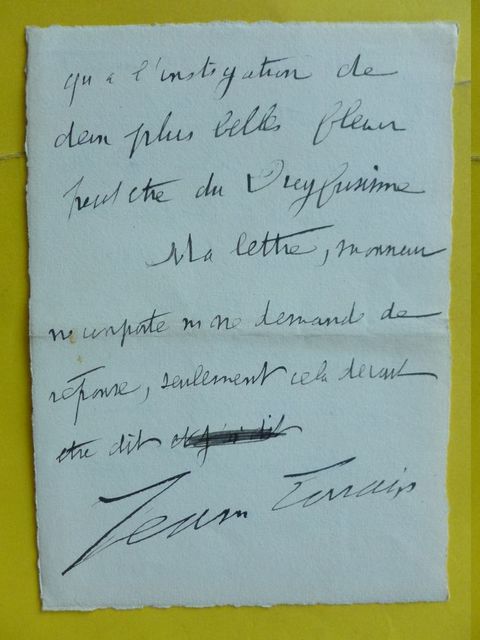 qu'à l'instigation de
deux plus belles fleurs
peut être du Dreyfusisme
Ma lettre, monsieur
ne comporte ni ne demande de
réponse, seulement cela devait
être dit et j'ai dit
Jean Lorrain